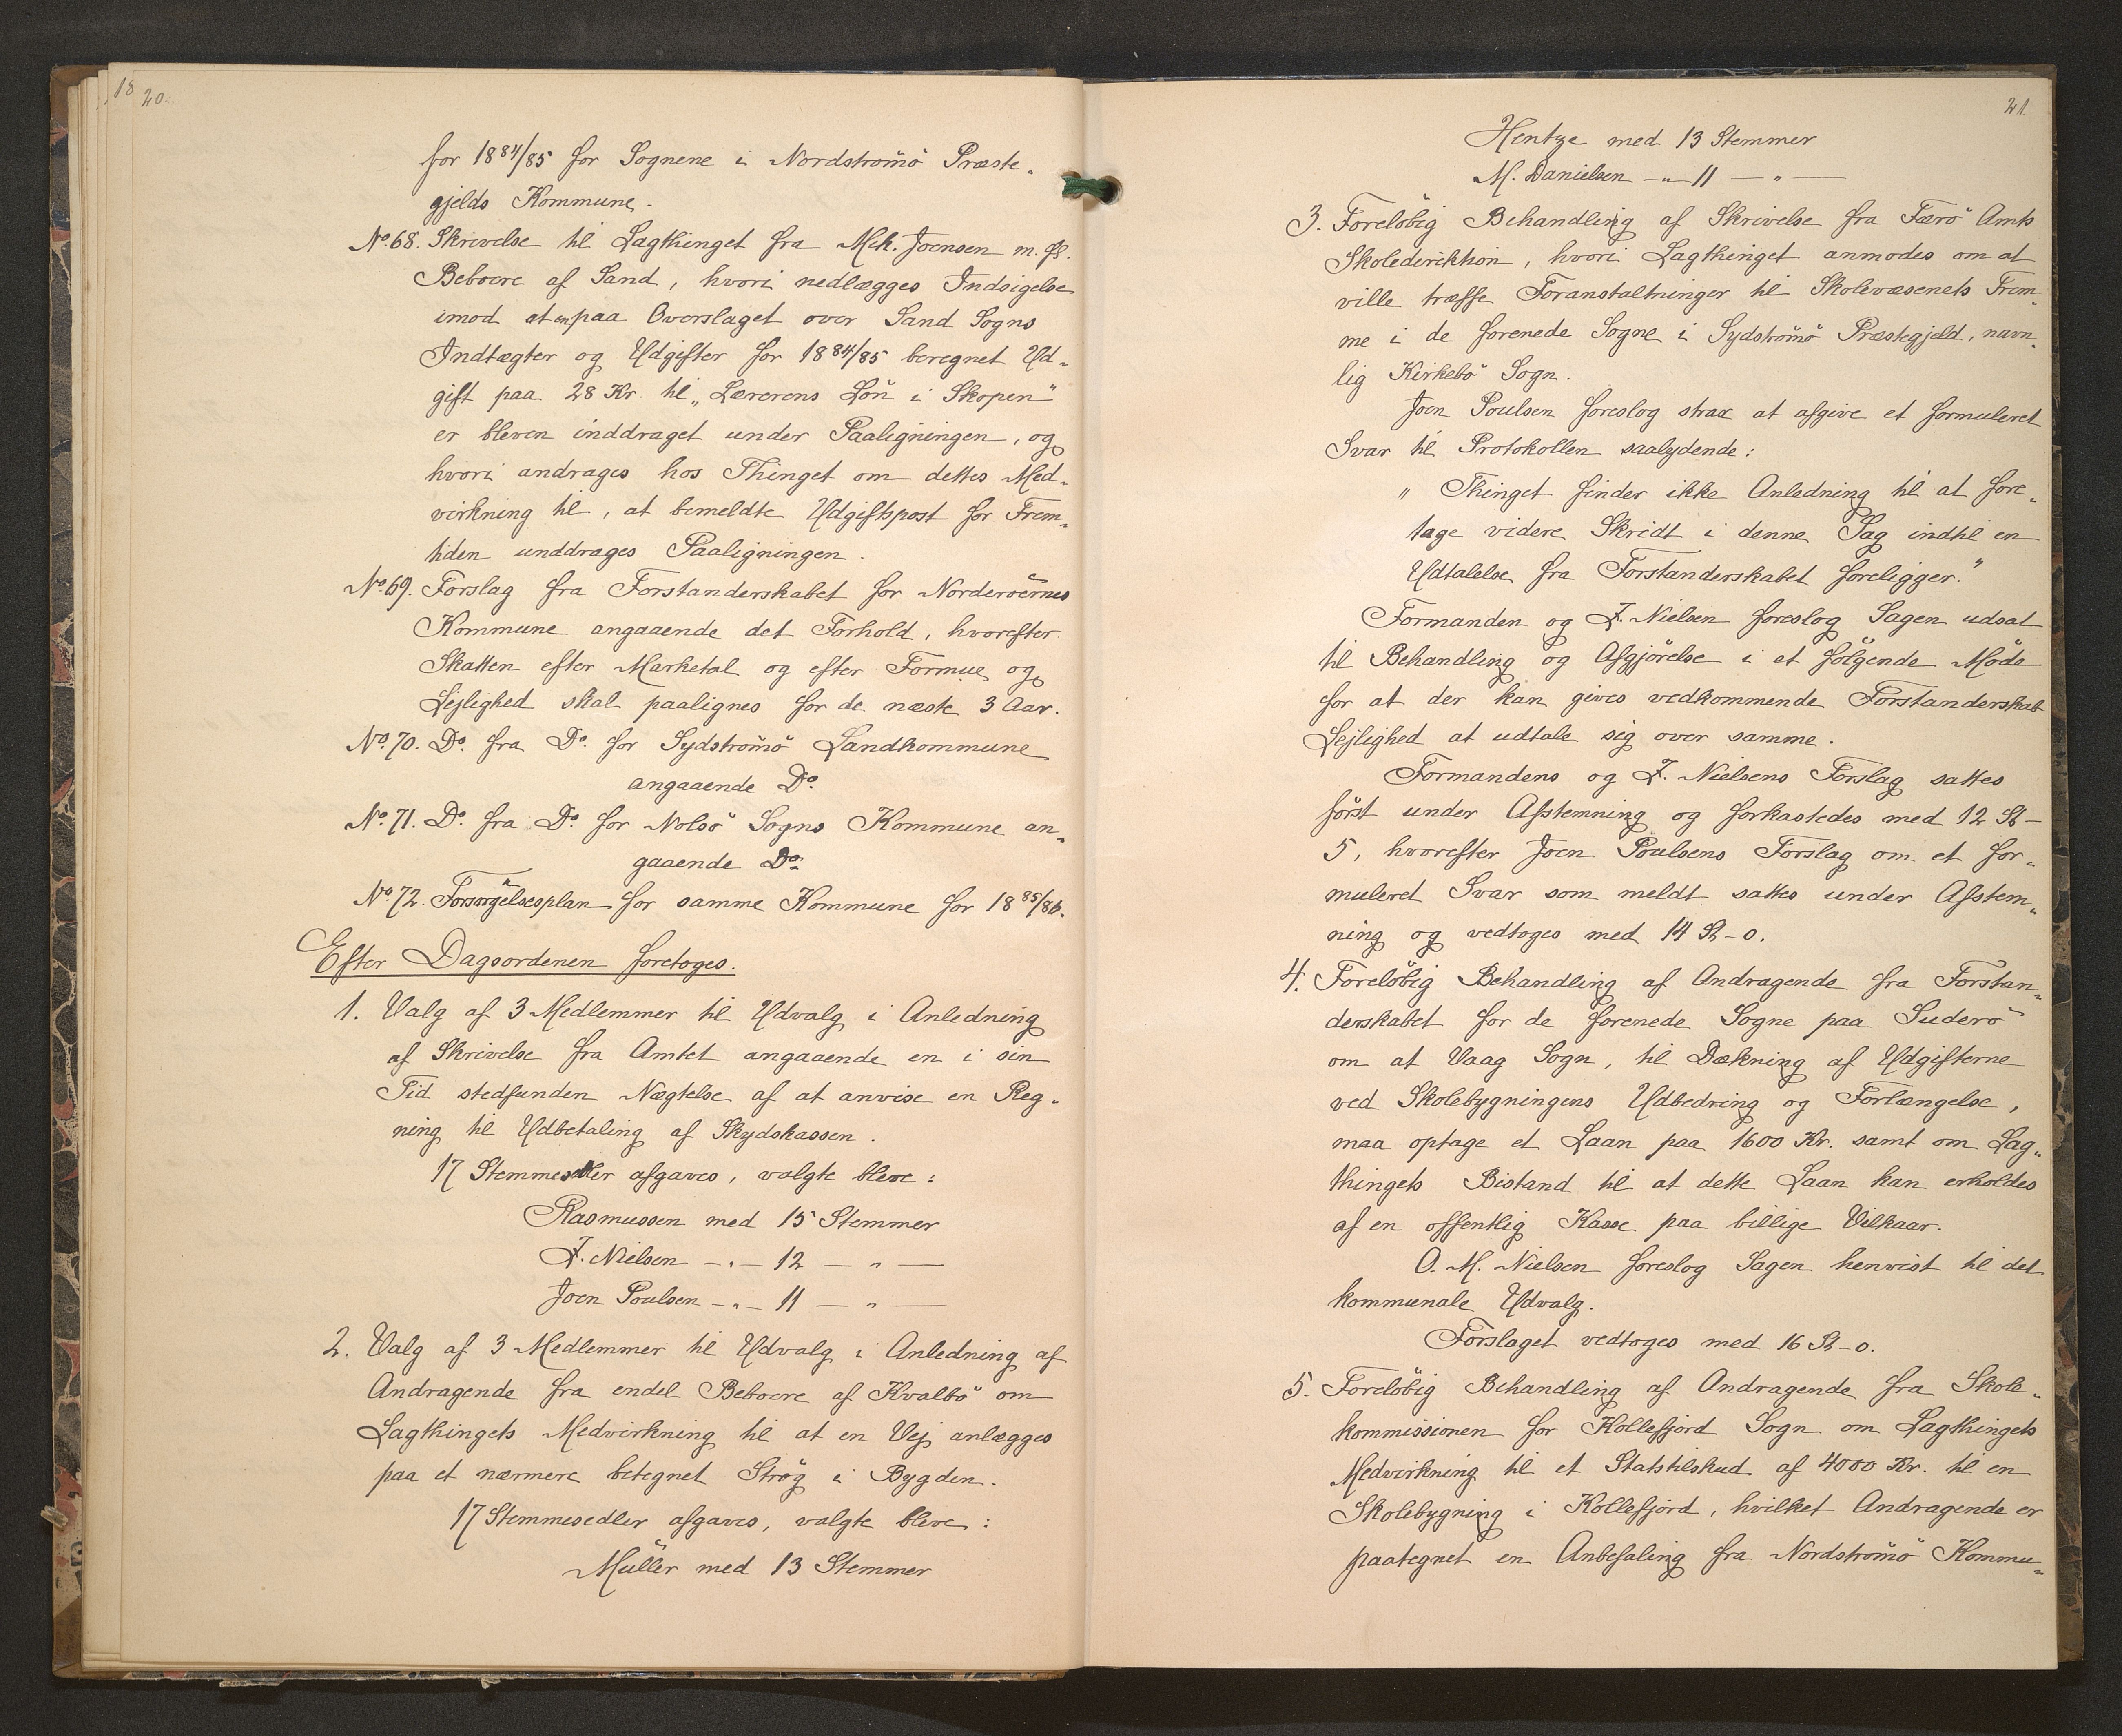 18
20.
for 1884/85 for Sognene i Nordströmö Præste-
gjelds Kommune.
No. 68. Skrivelse til Lagthinget fra Mch. Joensen m. fl.
Beboere af Sand, hvori nedlægges Indsigelse
imod at en paa Overslaget over Sand Sogns
Indtægter og Udgifter for 1884/85 beregnet Ud-
gift paa 28 Kr. til „Lærerens Lön i Skopen“
er bleven inddraget under Paaligningen, og
hvori andrages hos Thinget om dettes Med-
virkning til, at bemeldte Udgiftspost for Frem-
tiden unddrages Paaligningen.
No. 69. Forslag fra Forstanderskabet for Norderöernes
Kommune angaaende det Forhold, hvorefter
Skatten efter Marketal og efter Formue og
Lejlighed skal paalignes for de næste 3 Aar.
No. 70. Do. fra Do. for Sydströmö Landkommune
angaaende Do.
No. 71. Do. fra Do. for Nolsö Sogns Kommune an-
gaaende Do.
No. 72. Forsörgelsesplan for samme Kommune for 1885/86.
Efter Dagsordenen foretoges.
1. Valg af 3 Medlemmer til Udvalg i Anledning
af Skrivelse fra Amtet angaaende en i sin
Tid stedfunden Nægtelse af at anvise en Reg-
ning til Udbetaling af Skydskassen.
17 Stemmesedler afgaves, valgte bleve:
Rasmussen med 15 Stemmer
J. Nielsen - „ - 12 - „ -
Joen Poulsen - „ - 11 - „ -
2. Valg af 3 Medlemmer til Udvalg i Anledning af
Andragende fra endel Beboere af Kvalbö om
Lagthingets Medvirkning til at en Vej anlægges
paa et nærmere betegnet Strög i Bygden.
17 Stemmesedler afgaves, valgte bleve:
Müller med 13 Stemmer
21.
Hentze med 13 Stemmer
M. Danielsen - „ - 11 - „ -
3. Forelöbig Behandling af Skrivelse fra Færö Amts
Skoledirektion, hvori Lagthinget anmodes om at
ville træffe Foranstaltninger til Skolevæsenets Frem-
me i de forenede Sogne i Sydströmö Præstegjeld, navn-
lig Kirkebö Sogn.
Joen Poulsen foreslog strax at afgive et formuleret
Svar til Protokollen saalydende:
„Thinget finder ikke Anledning til at fore-
tage videre Skridt i denne Sag indtil en
Udtalelse fra Forstanderskabet foreligger.“
Formanden og J. Nielsen foreslog Sagen udsat
til Behandling og Afgjörelse i et fölgende Möde
for at der kan gives vedkommende Forstanderskab
Lejlighed at udtale sig over samme.
Formandens og J. Nielsens Forslag sattes
först under Afstemning og forkastedes med 12 St -
5, hvorefter Joen Poulsens Forslag om et for-
muleret Svar som meldt sattes under Afstem-
ning og vedtoges med 14 St - 0.
4. Forelöbig Behandling af Andragende fra Forstan-
derskabet for de forenede Sogne paa Suderö
om at Vaag Sogn, til Dækning af Udgifterne
ved Skolebygningens Udbedring og Forlængelse,
maa optage et Laan paa 1600 Kr. samt om Lag-
thingets Bistand til at dette Laan kan erholdes
af en offentlig Kasse paa billige Vilkaar.
O. M. Nielsen foreslog Sagen henvist til det
kommunale Udvalg.
Forslaget vedtoges med 16 St - 0.
5. Forelöbig Behandling af Andragende fra Skole-
kommissionen for Kollefjord Sogn om Lagthingets
Medvirkning til et Statstilskud af 4000 Kr. til en
Skolebygning i Kollefjord, hvilket Andragende er
paategnet en Anbefaling fra Nordströmö Kommu-